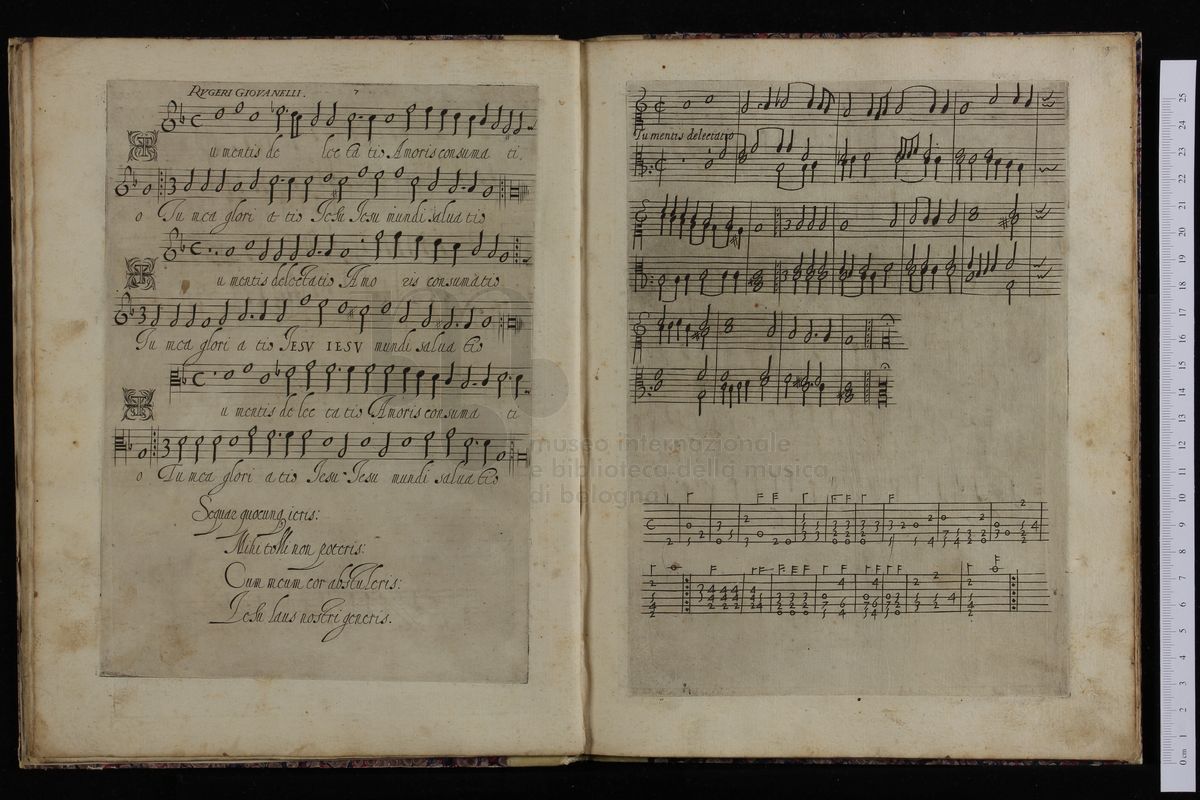 RVGERI GIOVANELLI.
7
T u mentis de lec ta tio Amoris consuma ti
o Tu mea glori a tio Jesu Jesu mundi salua tio
T u mentis delectatio Amo ris consumatio
Tu mea glori a tio JESV IESV mundi salua tio
T u mentis de lec ta tio Amoris consuma ti
o Tu mea glori a tio Jesu Jesu mundi salua tio
Sequar quocunq ieris:
Mihi tolli non poteris:
Cum meum cor abstuleris:
Jesu laus nostri generis.
Tu mentis delectatio
museo internazionale
e biblioteca della musica
di bologna